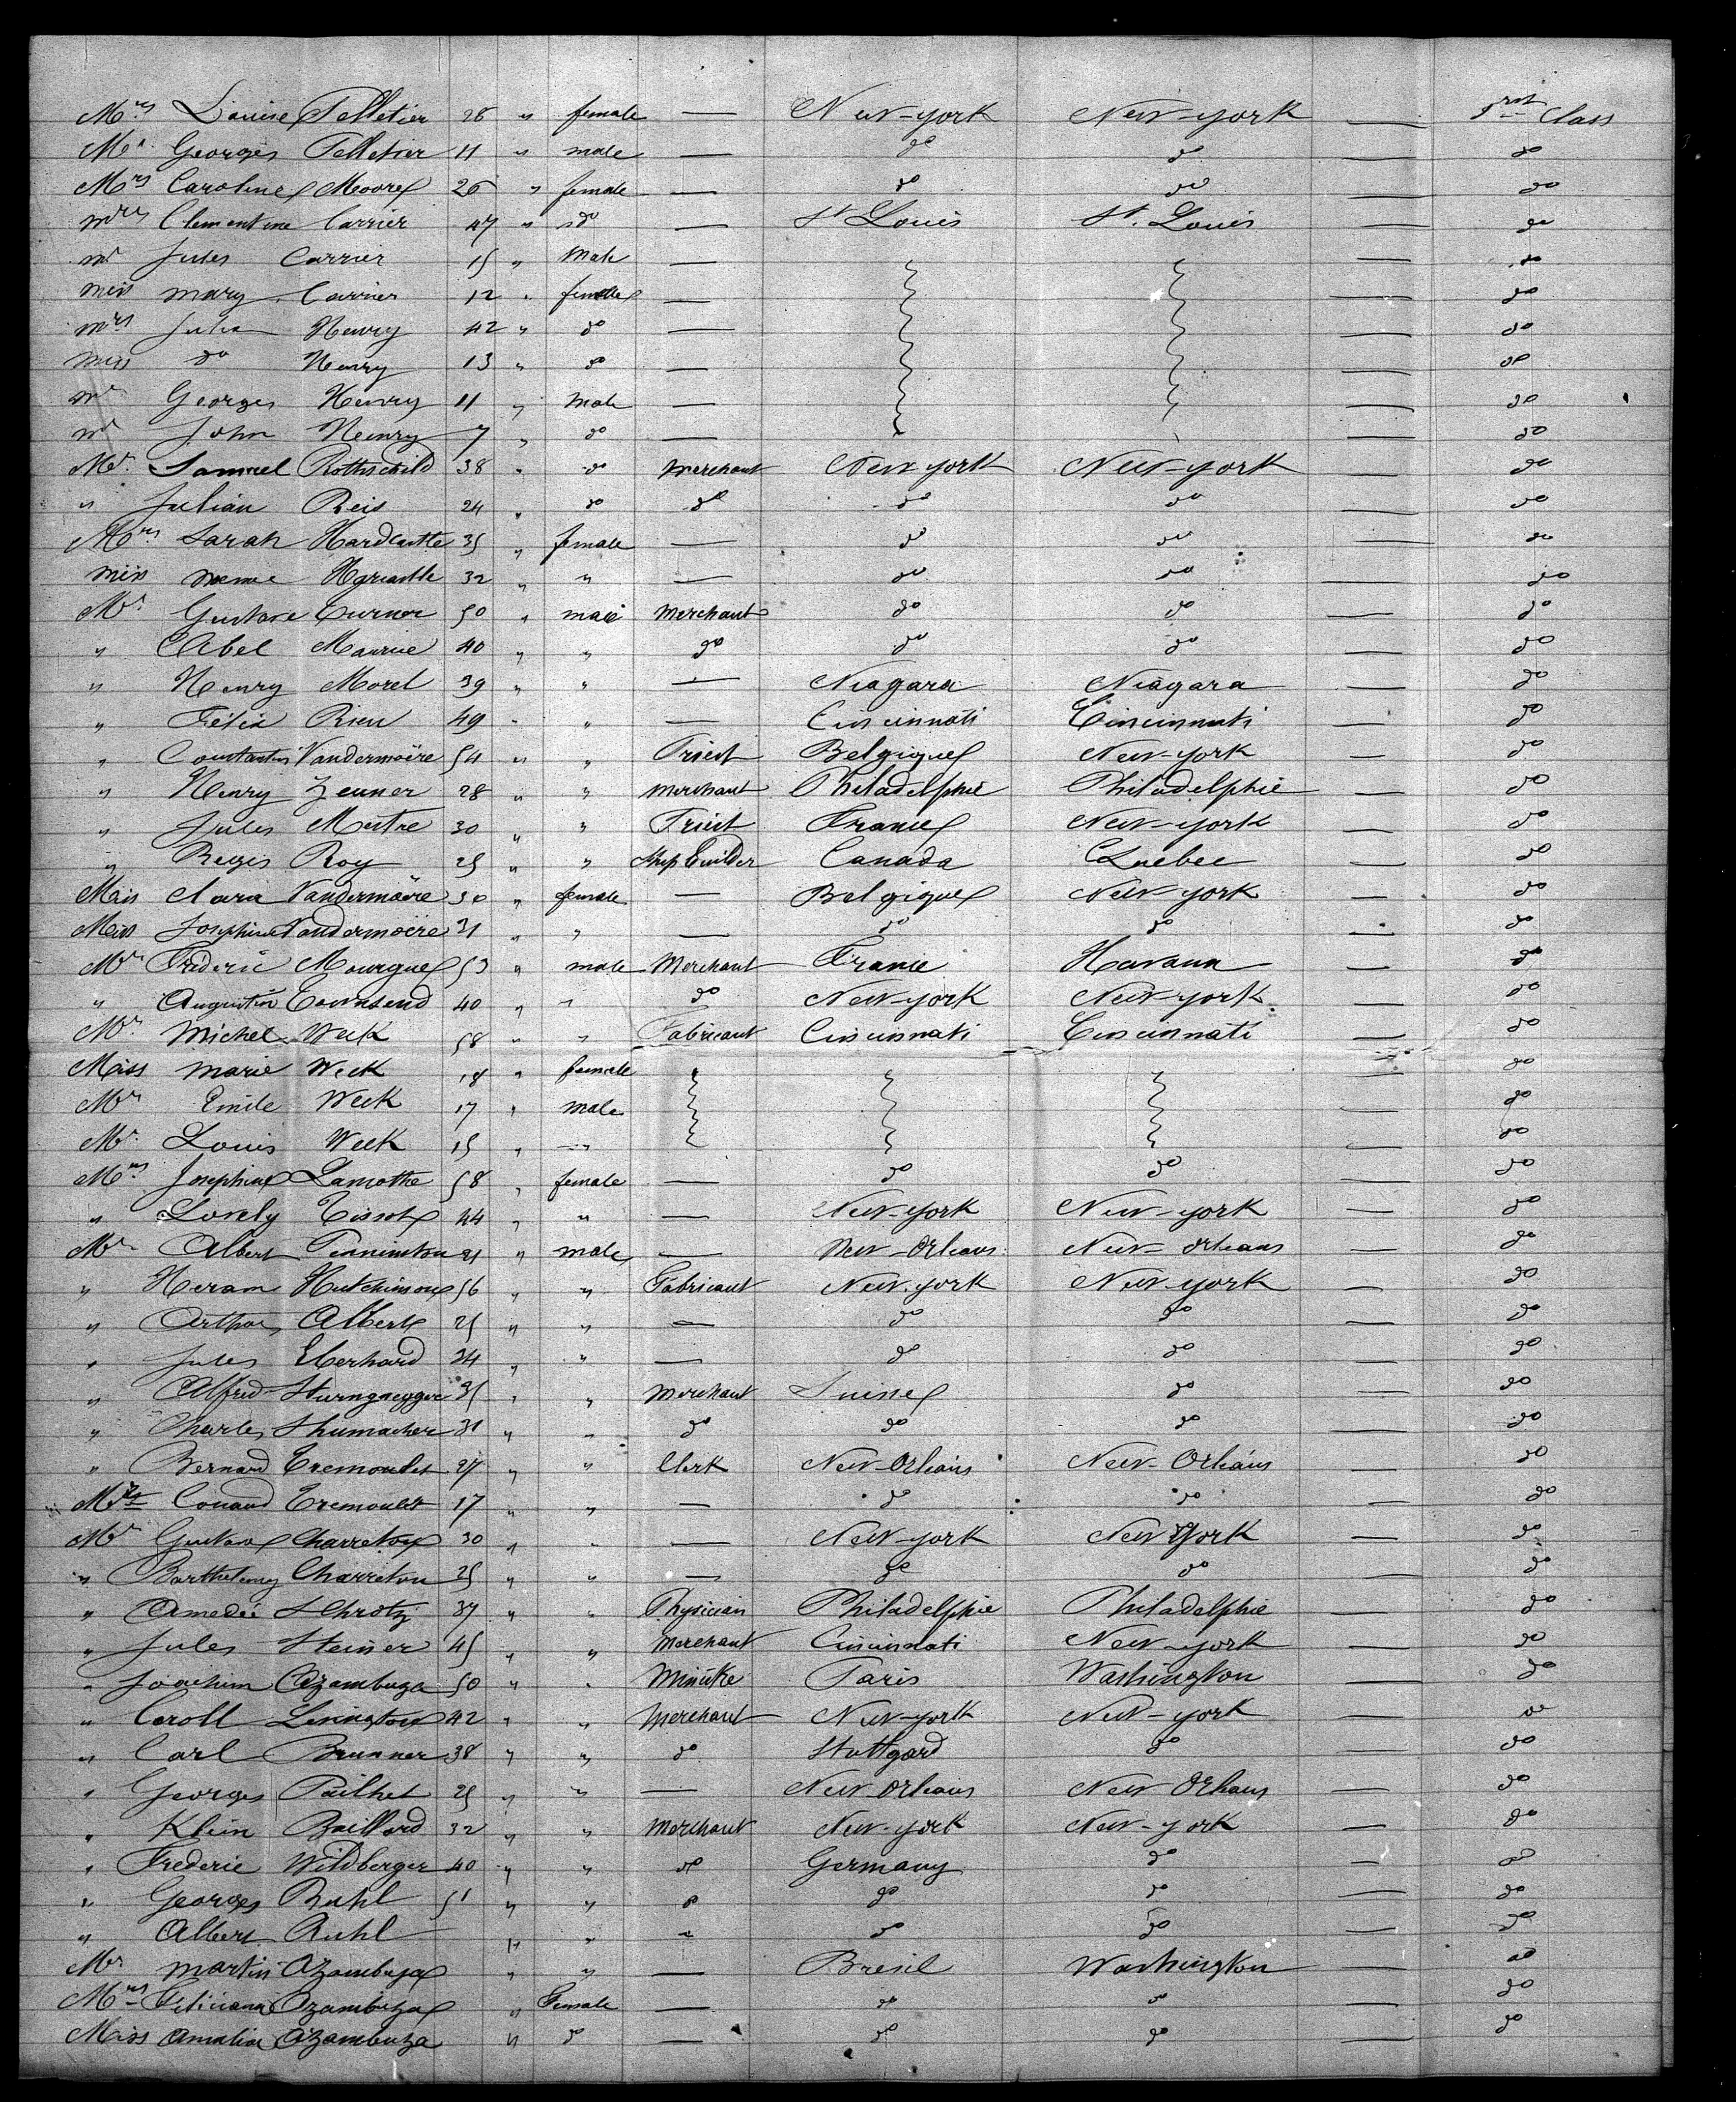 Mrs Louise Pelletier 28 " female — New-york New-york — 1rst Class
Mr Georges Pelletier 11 " male — do do do
Mrs Caroline Moore 26 " female — do do do
Mrs Clementine Carrier 47 " do — St Louis St. Louis — do
Mr Jules Carrier 15 " Male — — do
Miss Mary Carrier 12 " female — — do
Mrs Julia Henry 42 " do — — do
Miss do Henry 13 " do — — do
Mr Georges Henry 11 " Male — — do
Mr John Henry 7 " do — — do
Mr. Samuel Rothschild 38 " do Merchant New york New-york — do
" Julian Reis 24 " do do do do — do
Mrs Sarah Hardcastle 35 " female — do do — do
Miss 32 " " — do do — do
Mr. Gustave Turner 50 " male Merchant do do — do
" Abel 40 " " do do do — do
" Henry Morel 39 " " — Niagara Niagara — do
" Félix Rieu 49 " " — Cincinnati Cincinnati — do
" Constantin Vandermoëre 54 " " Priest Belgique New-york — do
" Henry Zeuner 28 " " Merchant Philadelphie Philadelphie — do
" Jules Mestre 30 " " Priest France New-york — do
" Regis Roy 25 " " Ship builder Canada Quebec — do
Miss Claria Vandermoëre 30 " female — Belgique New-york — do
Miss Josephine Vandermoëre 31 " " — do do — do
Mr Fréderic Mourgue 53 " male Merchant France Havana — do
" Augustin Townsend 40 " " do New-york New-york — do
Mr Michel Weck 58 " " Fabricant Cincinnati Cincinnati — do
Miss Marie Weck 18 " female — do
Mr Emile Weck 17 " male — do
Mr. Louis Weck 15 " " — do
Mrs Josephine Lamothe 58 " female — do do — do
" Lovely Tissot 44 " " — New-york New-york — do
Mr Albert 21 " male — New-Orleans New-Orleans — do
" Heram Hutchinson 56 " " Fabricant New-york New-york — do
" Arthur Albert 25 " " — do do — do
" Jules Eberhard 34 " " — do do — do
" Alfred 35 " " Merchant Suisse do — do
" Charles Shumacher 31 " " do do do — do
" Bernard Tremoulet 27 " " Clerk New-Orleans New-Orleans — do
Tremoulet 17 " " — do do — do
Mr Gustave Charreton 30 " " — New-york New York — do
" Barthelemy Charreton 25 " " — do do — do
" Amedée 37 " " Physician Philadelphie Philadelphie — do
" Jules Steiner 45 " " Merchant Cincinnati New-york — do
" Joachim Azambuza 50 " " Ministre Paris Washington — do
" Caroll Livingston 42 " " Merchant New-york New-york — do
" Carl Brunner 38 " " do Stuttgard do — do
" Georges Pailhet 25 " " — New-Orleans New Orleans — do
" Klein Baillard 32 " " Merchant New-york New-york — do
" Frederic Wildberger 40 " " do Germany do — do
" Georges Ruhl 51 " " do do do — do
" Albert Ruhl — " " " do do — do
Mr Martin Azambuza " " — Bresil Washington — do
Mrs Feliciana Azambuza " Female — do do — do
Miss Amalia Azambuza " do — do do — do